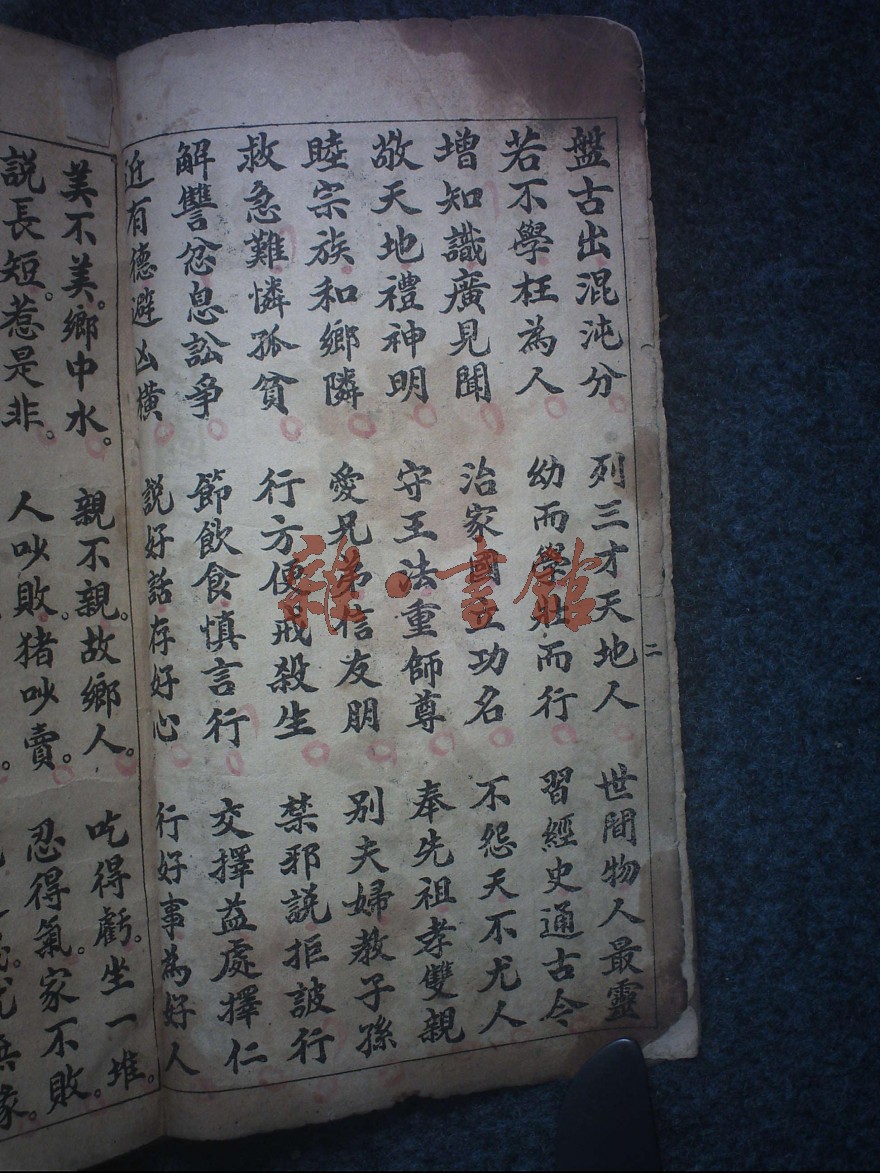 盤古出混沌分 列三才天地人 世間物人最靈
若不學枉為人 幼而學壯而行 習經史通古今
增知識廣見聞 治家國立功名 不怨天不尤人
敬天地禮神明 守王法重師尊 奉先祖孝雙親
睦宗族和鄉隣 愛兄弟信友朋 別夫婦教子孫
救急難憐孤貧 行方便戒殺生 禁邪說拒詖行
解讐忿息訟爭 節飲食慎言行 交擇益處擇仁
近有德避凶橫 說好話存好心 行好事為好人
二
美不美。鄉中水。 親不親。故鄉人。 吃得虧。坐一堆。
說長短。惹是非。 人吵敗。猪吵賣。 忍得氣。家不敗。
雜·書館